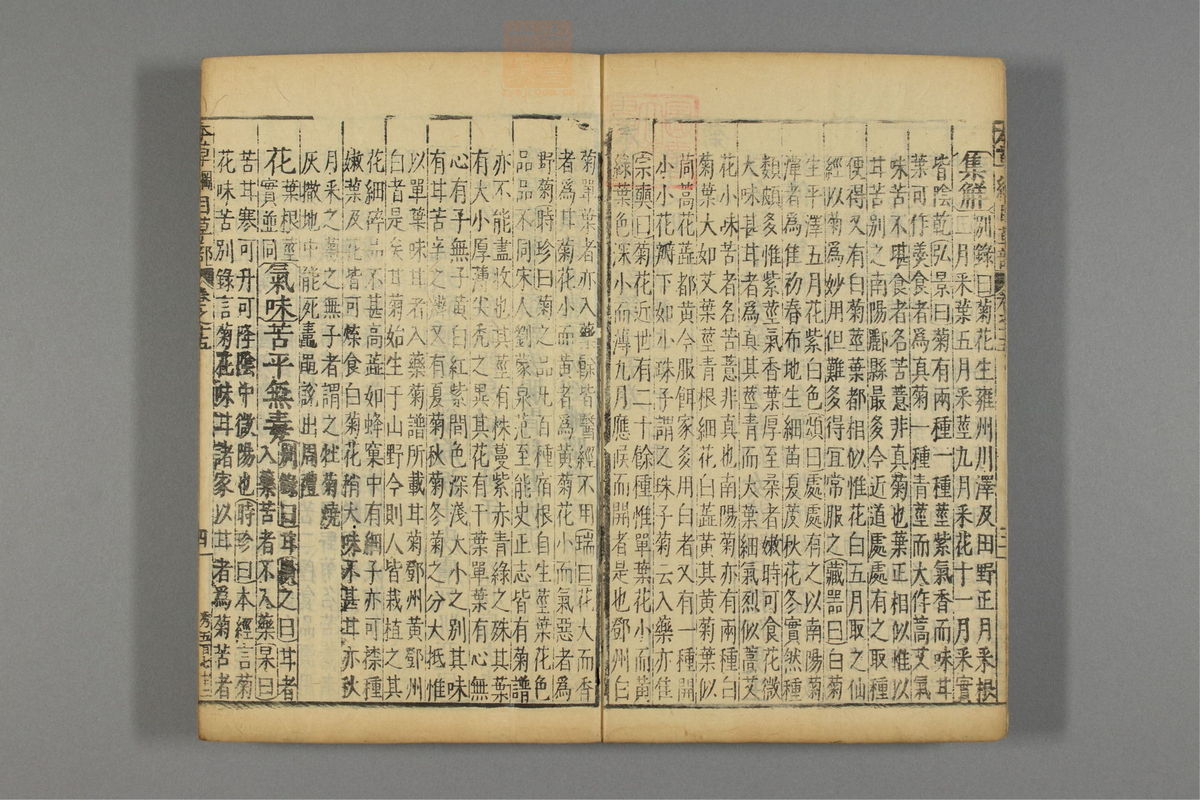 集解別錄曰菊花生雍州川澤及田野正月采根
三月采葉五月采莖九月采花十一月采實
皆陰乾弘景曰菊有兩種一種莖紫氣香而味甘
葉可作羹食者爲真菊一種青莖而大作蒿艾氣
味苦不堪食者名苦薏非真菊也葉正相似惟以
甘苦別之南陽酈縣最多今近道處處有之取種
便得又有白菊莖葉都相似惟花白五月取之仙
經以菊爲妙用但難多得宜常服之藏器曰白菊
生平澤五月花紫白色頌曰處處有之以南陽菊
潭者爲佳初春布地生細苗夏茂秋花冬實然種
類頗多惟紫莖氣香葉厚至柔者嫩時可食花微
大味甚甘者爲真其莖青而大葉細氣烈似蒿艾
花小味苦者名苦薏非真也南陽菊亦有兩種白
菊葉大如艾葉莖青根細花白蘂黃其黃菊葉似
茼蒿花蘂都黃今服餌家多用白者又有一種開
小小花瓣下如小珠子謂之珠子菊云入藥亦佳
宗奭曰菊花近世有二十餘種惟單葉花小而黃
綠葉色深小而薄九月應候而開者是也鄧州白
菊單葉者亦入藥餘皆醫經不用瑞曰花大而香
者爲甘菊花小而黃者爲黃菊花小而氣惡者爲
野菊時珍曰菊之品凡百種宿根自生莖葉花色
品品不同宋人劉蒙泉范至能史正志皆有菊譜
亦不能盡收也其莖有株蔓紫赤青綠之殊其葉
有大小厚薄尖禿之異其花有千葉單葉有心無
心有子無子黃白紅紫間色深淺大小之別其味
有甘苦辛之辨又有夏菊秋菊冬菊之分大抵惟
以單葉味甘者入藥菊譜所載甘菊鄧州黃鄧州
白者是矣甘菊始生于山野今則人皆栽植之其
花細碎品不甚高蘂如蜂窠中有細子亦可捺種
嫩葉及花皆可煠食白菊花稍大味不甚甘亦秋
月采之菊之無子者謂之牡菊燒
灰撒地中能死鼃黽說出周禮
花葉根莖實並同氣味苦平無毒別錄曰甘㝡之曰甘者
入藥苦者不入藥杲曰
苦甘寒可升可降陰中微陽也時珍曰本經言菊
花味苦別錄言菊花味甘諸家以甘者爲菊苦者
本草綱目草部 卷之十五 四